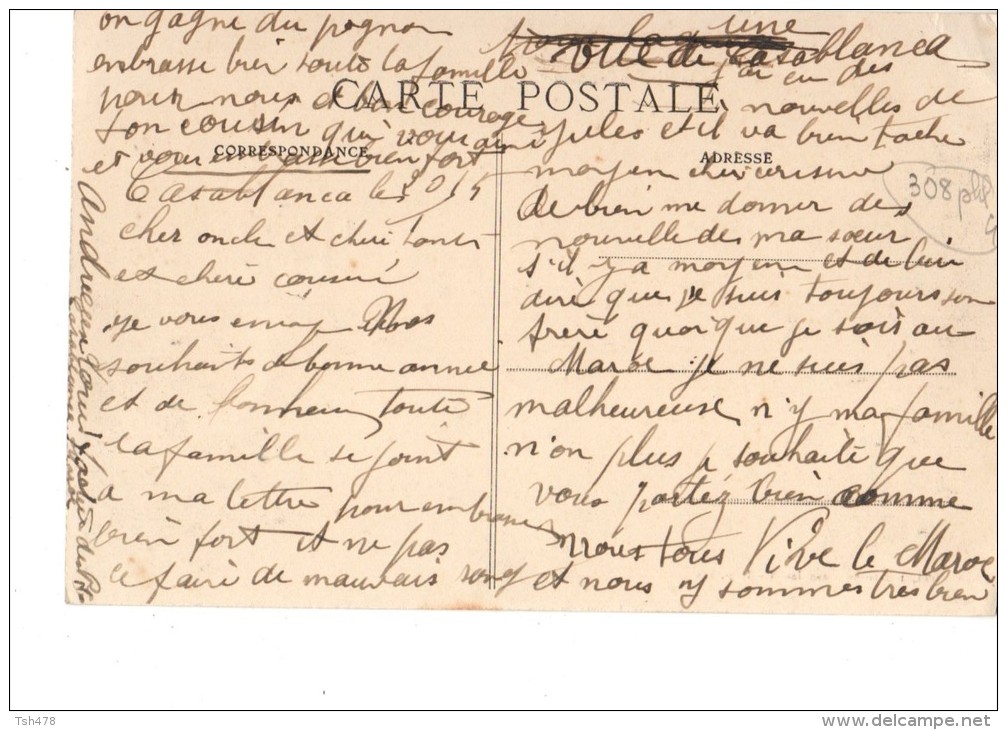 CARTE POSTALE
CORRESPONDANCE
ADRESSE
Casablanca le
cher oncle et cheri tante
et cheri cousine
je vous envoi Mes
souhaits de bonne année
et de bonneur toute
la famille se joint
a ma lettre pour embrasse
bien fort et ne pas
ce faire de mauvais sang
ville de Casablanca
une
j'ai eu des
nouvelles de
jules et il va bien tache
moyen cheri cousine
de bien me donner des
nouvelle de ma sœur
s'il y a moyen et de lui
dire que je suis toujours son
frere quoique je sois au
Maroc je ne suis pas
malheureuse n'y ma famille
n'on plus je souhaite que
vous portez bien comme
nous tous Vive le Maroc
et nous y sommes tres bien
on gagne du pognon
embrasse bien toute la famille
pour nous et bon courage
ton cousin qui vous aime
et vous embrasse bien fort
308
Tsh478
www.delcampe.net